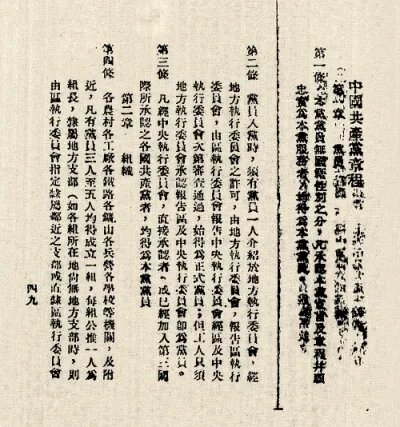 中國共產黨章程
第一章 黨員
第一條 本黨黨員無國籍性別之分,凡承認本黨宣言及章程并願
忠實爲本黨服務者,均得爲本黨黨員。
第二條 黨員入黨時,須有黨員一人介紹於地方執行委員會,經
地方執行委員會之許可,由地方執行委員會,報告區執行
委員會,由區執行委員會報告中央執行委員會,經區及中央
執行委員會次第審查通過,始得爲正式黨員;但工人只須
地方執行委員會承認報告區及中央執行委員會卽爲黨員。
第三條 凡經中央執行委員會,直接承認者,或已經加入第三國
際所承認之各國共產黨者,均得爲本黨黨員
第二章 組織
第四條 各農村各工廠各鐵路各鑛山各兵營各學校等機關,及附
近,凡有黨員三人至五人均得成立一組,每組公推一人爲
組長,隸屬地方支部(如各組所在地尙無地方支部時,則
由區執行委員會指定隸屬鄰近之支部或直隸區執行委員會
四九